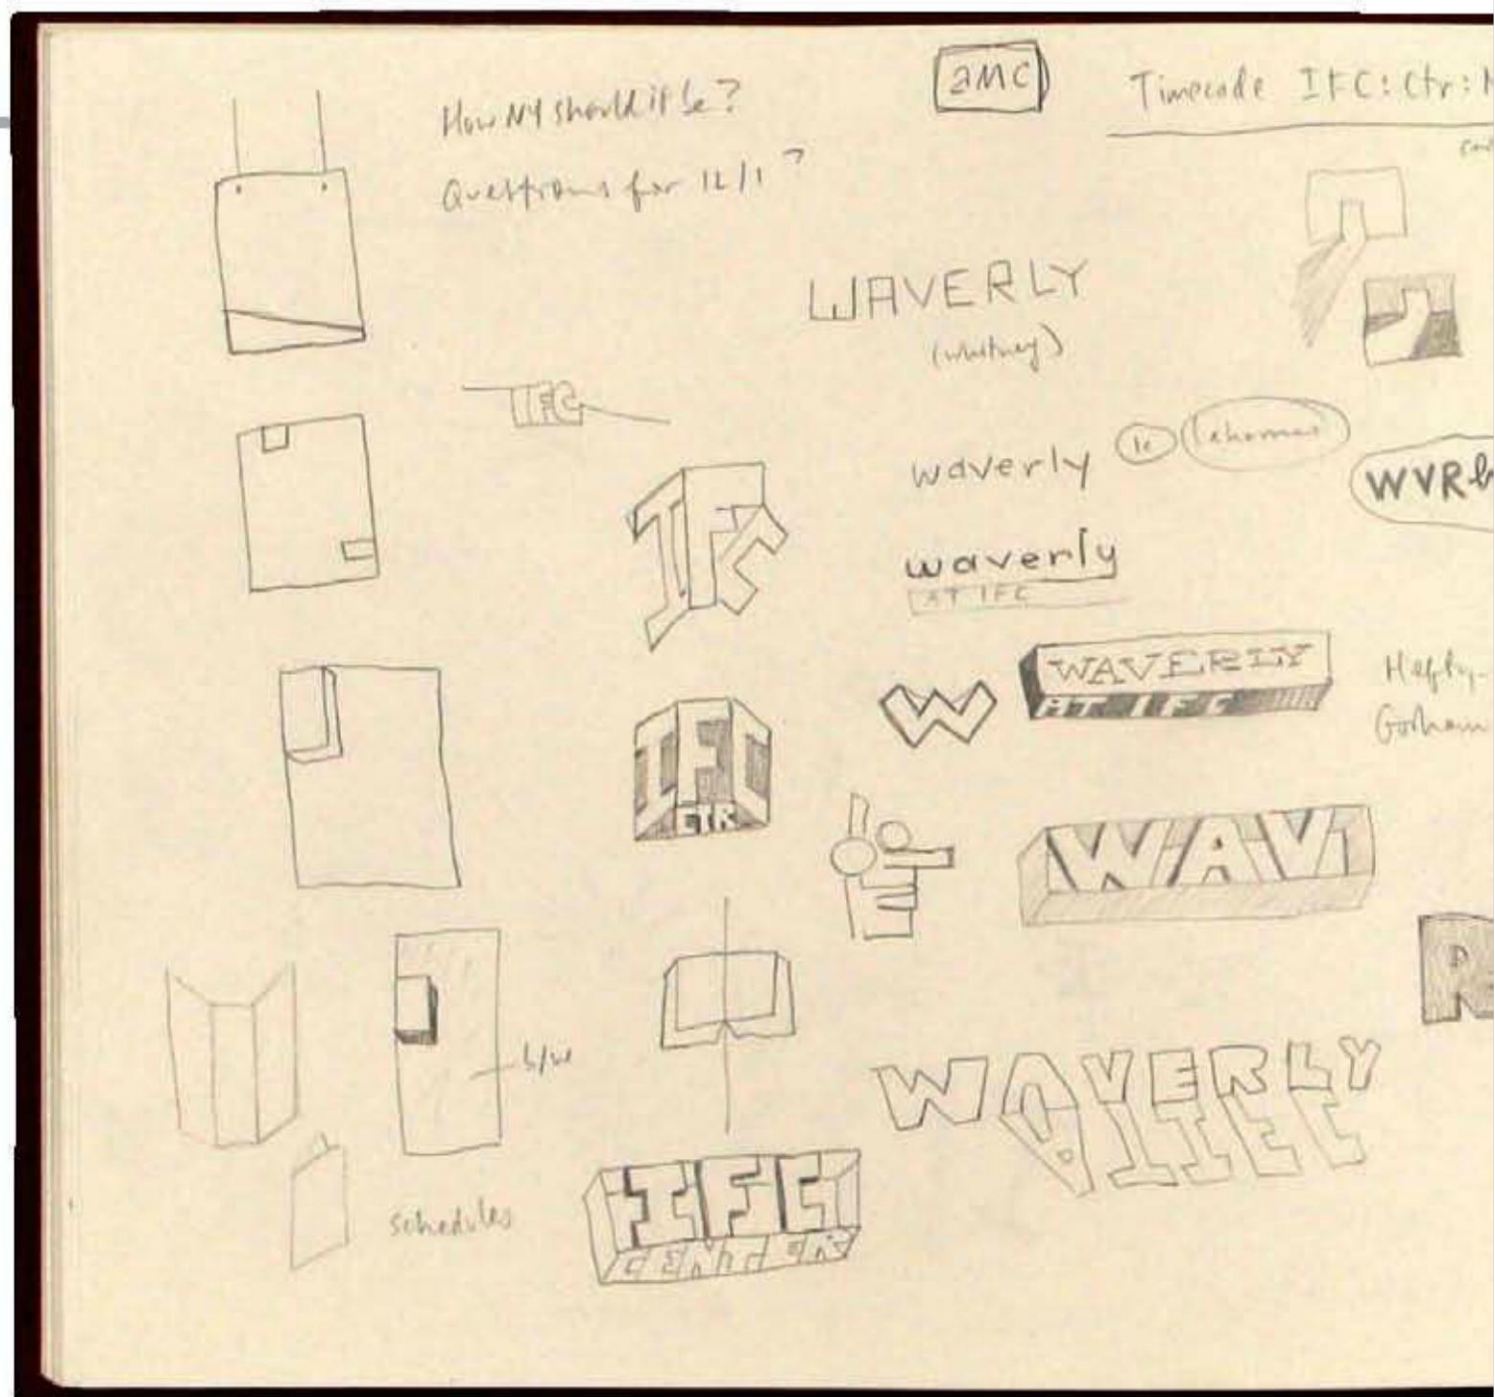 How NY should it be?
Questions for 12/1?
amc
Timecode IFC:Ctr:
WAVERLY
(whitney)
IFC
waverly
WVR
IFC
waverly
AT IFC
WAVERLY
AT IFC
W
IFC
CTR
Gorham
WAV
R
b/w
WAVERLY
schedules
IFC
CENTER